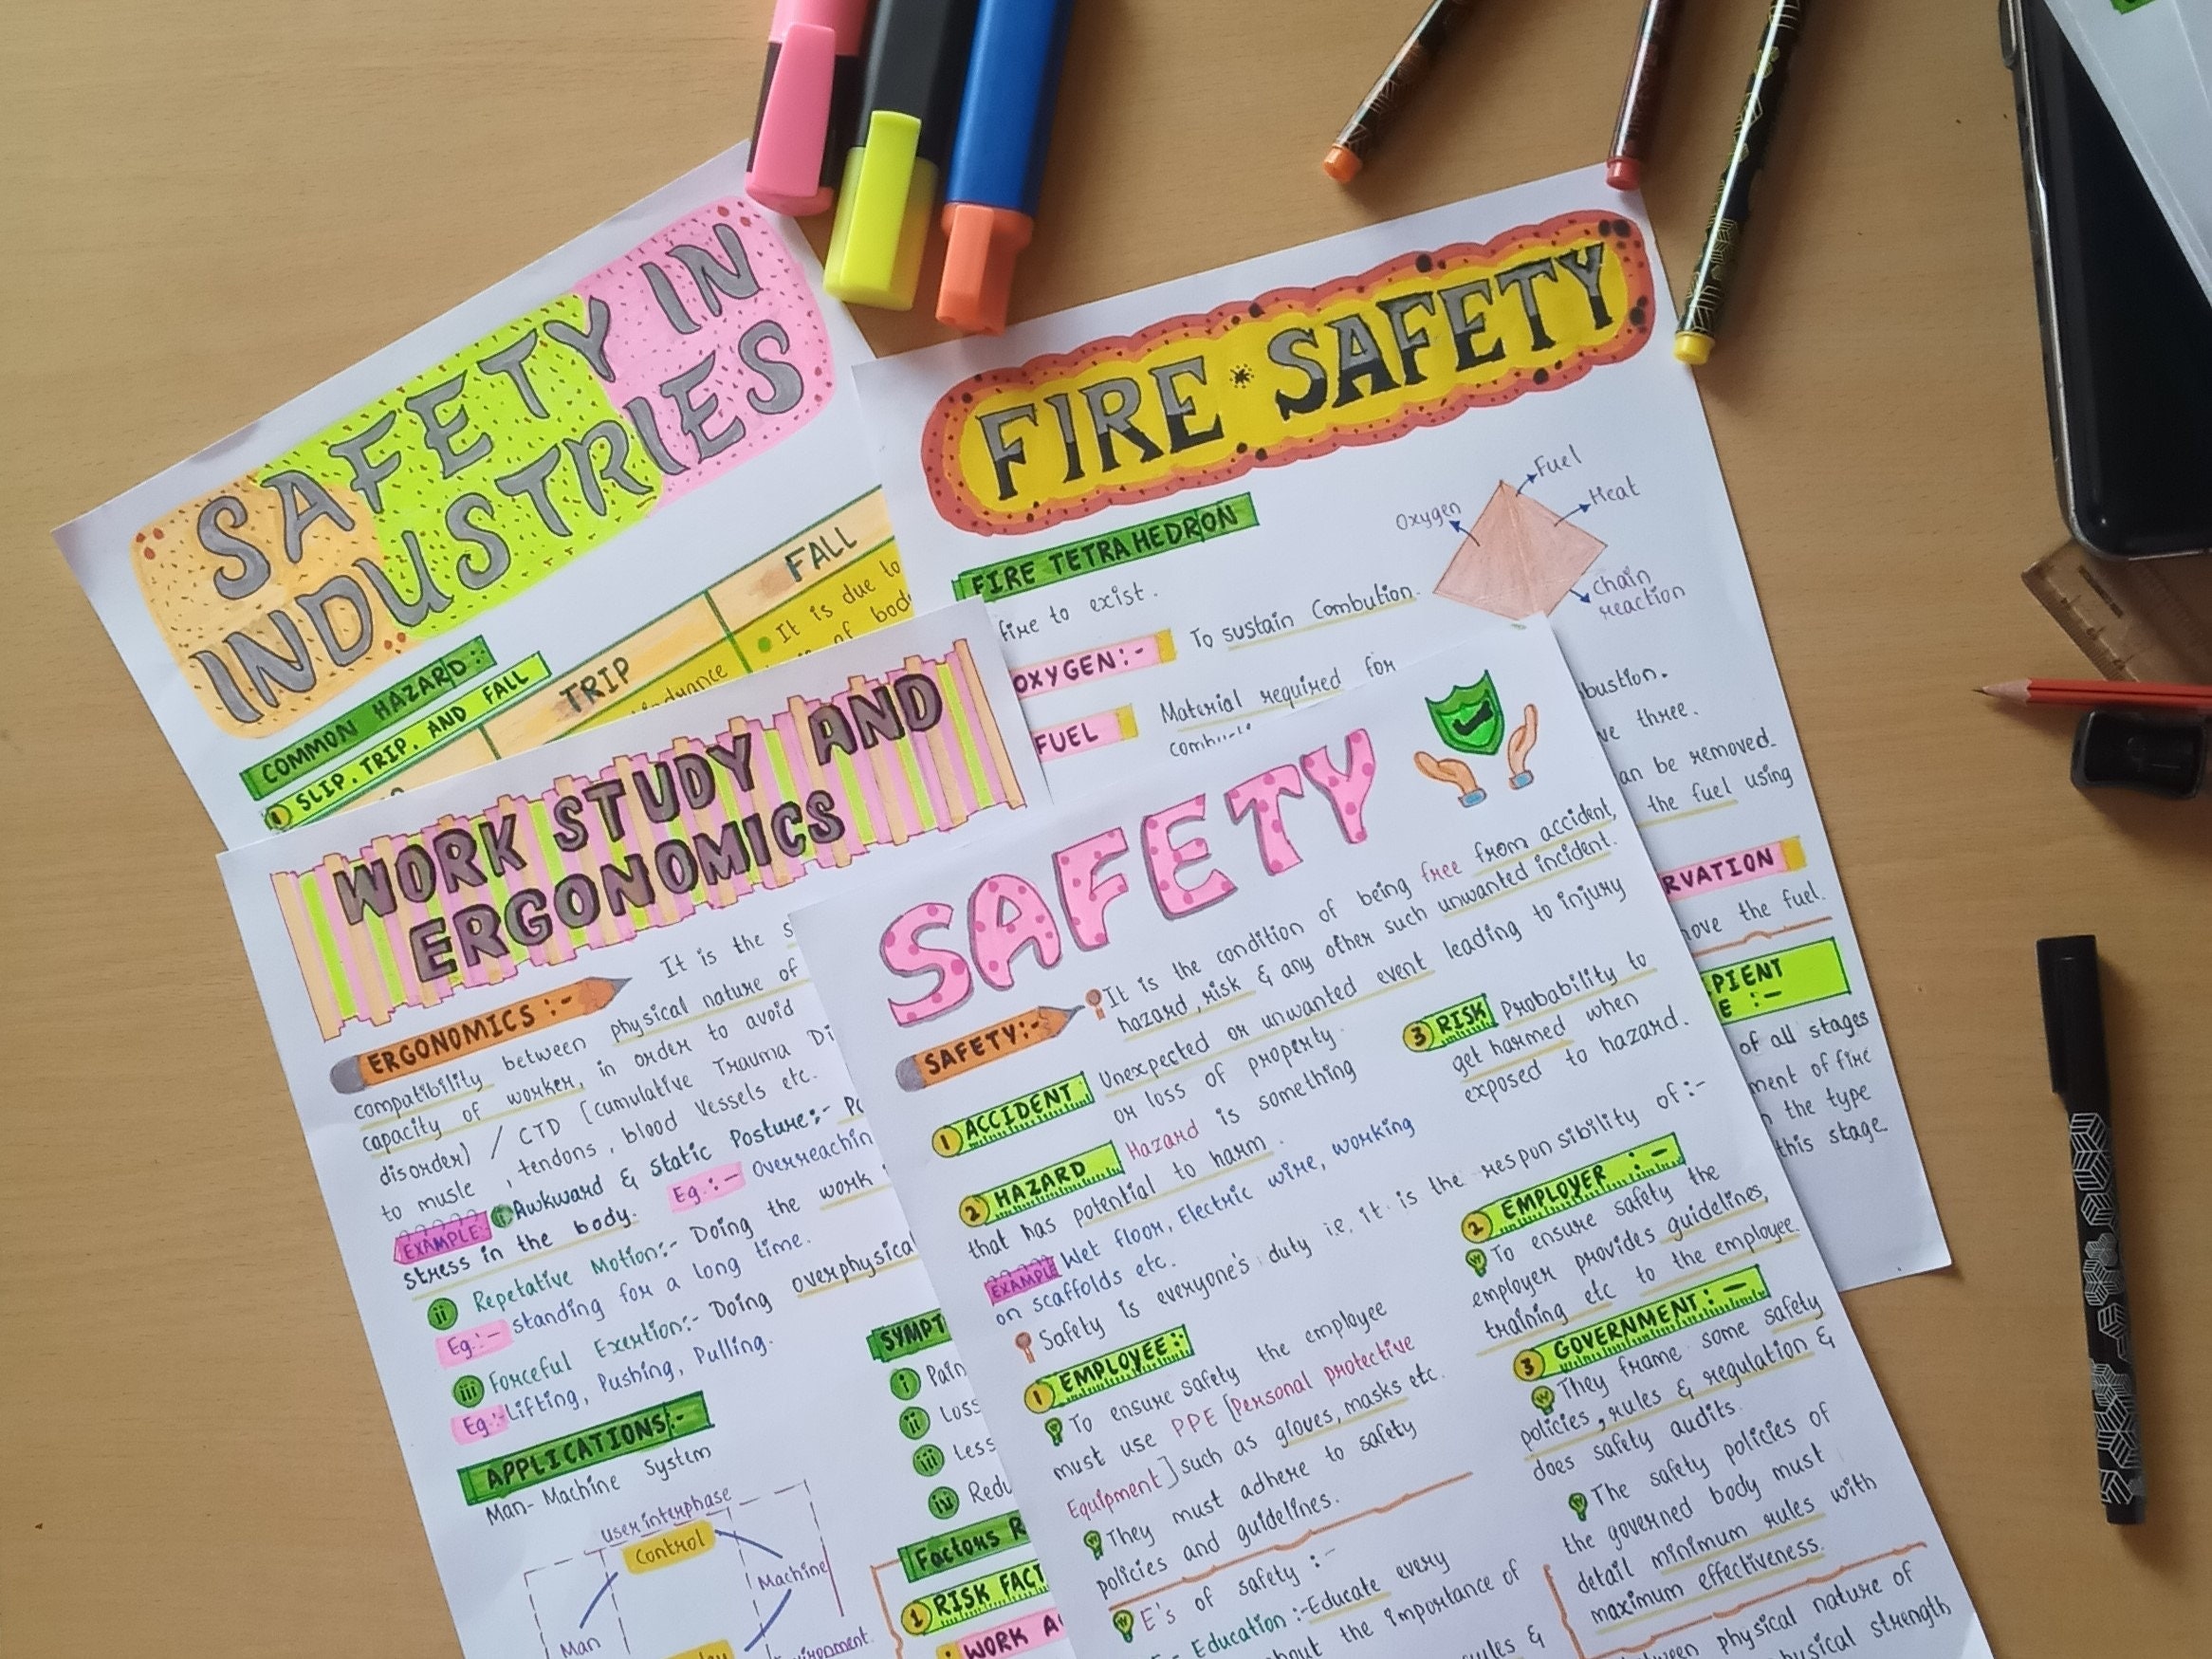 SAFETY IN
INDUSTRIES
COMMON HAZARD:
1 SLIP, TRIP, AND FALL
TRIP
FALL
It is due to
of body
FIRE SAFETY
FIRE TETRAHEDRON
fire to exist.
OXYGEN:- To sustain Combution.
FUEL Material required for
Oxygen
Fuel
Heat
Chain
reaction
bustion.
ve three.
an be removed.
the fuel using
RVATION
move the fuel.
PIENT
E :-
of all stages
ment of fire
the type
this stage.
WORK STUDY AND
ERGONOMICS
ERGONOMICS :- It is the s
compatibility between physical nature of
capacity of worker, in order to avoid
disorder) / CTD [cumulative Trauma Di
to musle , tendons, blood Vessels etc.
EXAMPLE: i Awkward & Static Posture:- Po
stress in the body. Eg.:- Overreachin
ii Repetative Motion:- Doing the work
Eg:- standing for a long time.
iii Forceful Exertion:- Doing overphysical
Eg:- Lifting, Pushing, Pulling.
APPLICATIONS:-
Man-Machine System
user interphase
Control
Machine
Man
SYMPT
i Pain
ii Loss
iii Less
iv Redu
Factors R
1 RISK FACT
WORK A
SAFETY
SAFETY:- It is the condition of being free from accident,
hazard, risk & any other such unwanted incident.
1 ACCIDENT Unexpected or unwanted event leading to injury
or loss of property.
2 HAZARD Hazard is something
that has potential to harm.
EXAMPLE Wet floor, Electric wire, working
on scaffolds etc.
3 RISK Probability to
get harmed when
exposed to hazard.
Safety is everyone's duty i.e. it is the responsibility of:-
1 EMPLOYEE:-
To ensure safety the employee
must use PPE [Personal protective
Equipment] such as gloves, masks etc.
They must adhere to safety
policies and guidelines.
2 EMPLOYER :-
To ensure safety the
employer provides guidelines,
training etc to the employee.
3 GOVERNMENT :-
They frame some safety
policies, rules & regulation &
does safety audits.
The safety policies of
the governed body must
detail minimum rules with
maximum effectiveness.
E's of safety :-
Education :- Educate every
about the importance of
ules &
between physical nature of
physical strength